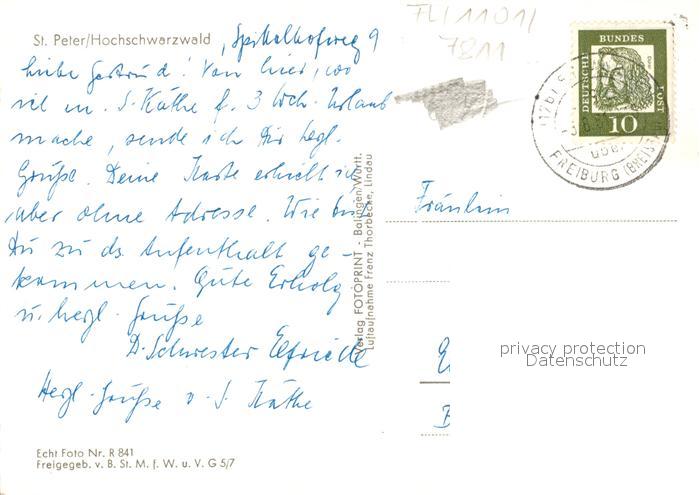 St. Peter/Hochschwarzwald, Spittelhofweg 9
Liebe Gertrud! Von hier, wo
ich m. S. Käthe f. 3 Wch. Urlaub
mache, sende ich Dir herzl.
Grüße. Deine Karte erhielt ich,
aber ohne Adresse. Wie bist
Du zu ds. Aufenthalt ge-
kommen. Gute Erholg
u. herzl. Grüße
D. Schwester Elfriede
Herzl. Grüße v. S. Käthe
Echt Foto Nr. R 841
Freigegeb. v. B. St. M. f. W. u. V. G 5/7
Verlag FOTOPRINT - Balingen/Württ.
Luftaufnahme Franz Thorbecke, Lindau
FL/1101/
7811
DEUTSCHE BUNDESPOST
Dürer
10
über
FREIBURG (BREISG)
Fräulein
privacy protection
Datenschutz